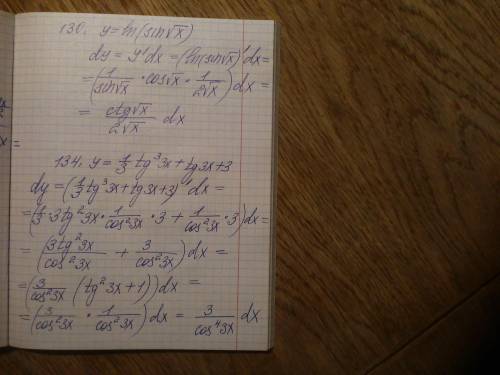 130. y = ln(sin√x)
dy = y'dx = (ln(sin√x))'dx =
= (1/sin√x · cos√x · 1/2√x) dx =
= ctg√x/2√x dx
134. y = 1/3 tg³3x + tg3x + 3
dy = (1/3 tg³3x + tg3x + 3)'dx =
= (1/3 · 3tg²3x · 1/cos²3x · 3 + 1/cos²3x · 3) dx =
= (3tg²3x/cos²3x + 3/cos²3x) dx =
= (3/cos²3x (tg²3x + 1)) dx =
= (3/cos²3x · 1/cos²3x) dx = 3/cos⁴3x dx